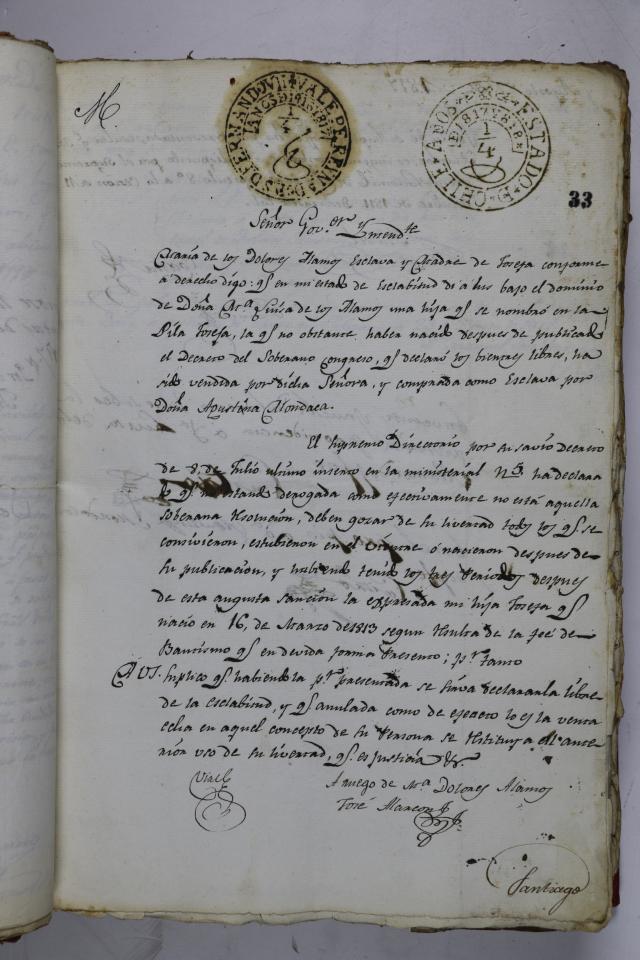 M.
FERNANDO VII VALE REYNADO
AÑOS D 1816 Y 1817
1/4
ESTADO D CHILE AÑOS
D 1817 Y 1818
1/4
33
Señor Gov.or Yntend.te
Maria de los Dolores Alamos Esclava y Madre de Josefa conforme
a derecho digo: q.e en mi estado de Esclabitud di a lus bajo el dominio
de Doña M.a Luisa de los Alamos una hija q.e se nombró en la
Pila Josefa, la q.e no obstante haber nacido despues de publicado
el Decreto del Soberano Congreso, q.e declaró los bientres libres, ha
sido vendida por dicha Señora, y comprada como Esclava por
Doña Agustina Mondaca.
El supremo Directorio por su savio Decreto
de 8, de Julio ultimo inserto en la ministerial N. 5. ha declara
do q.e no estando derogada como efectivamente no está aquella
soberana Resolucion, deben gozar de su livertad todos los q.e se
concivieron, estubieron en el vientre ó nacieron despues de
su publicacion, y habiendo tenido los tres Periodos despues
de esta augusta sancion la expresada mi hija Josefa q.e
nacio en 16, de Marzo de 1813 segun Resulta de la feé de
Bautismo q.e en devida forma Presento; p.r tanto
A US. suplico q.e habiendola p.r presentada se sirva declararla libre
de la esclabitud, y q.e anulada como de efecto lo es la venta
echa en aquel concepto de su Persona se Restituya al ante
rior uso de su livertad, q.e es justicia &.
Vial
A ruego de M.a Dolores Alamos
José Alarcon
Santiago